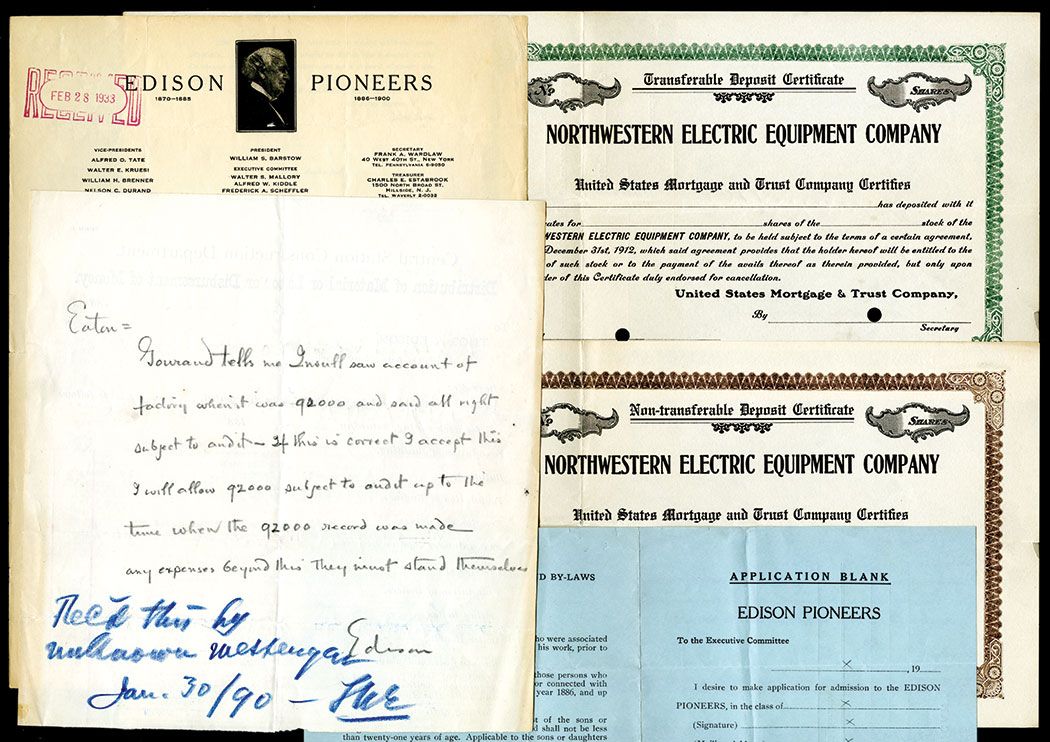 RECEIVED
FEB 28 1933
EDISON PIONEERS
1870—1885
1886—1900
VICE-PRESIDENTS
ALFRED O. TATE
WALTER E. KRUESI
WILLIAM H. BRENNER
NELSON C. DURAND
PRESIDENT
WILLIAM S. BARSTOW
EXECUTIVE COMMITTEE
WALTER S. MALLORY
ALFRED W. KIDDLE
FREDERICK A. SCHEFFLER
SECRETARY
FRANK A. WARDLAW
40 WEST 40TH ST., NEW YORK
TEL. PENNSYLVANIA 6-9050
TREASURER
CHARLES E. ESTABROOK
1500 NORTH BROAD ST.
HILLSIDE, N. J.
TEL. WAVERLY 2-0032
Central Station Construction Department.
Distribution of Material or Labor or Disbursement of Money.
Eaton=
Gouraud tells me Insull saw account of
factory when it was 92000 and said all right
subject to audit— If this is correct I accept this
I will allow 92000 subject to audit up to the
time when the 92000 record was made
any expenses beyond this They must stand themselves
Edison
Rec'd this by
unknown messenger
Jan. 30/90 — SBE
Transferable Deposit Certificate
No
SHARES
NORTHWESTERN ELECTRIC EQUIPMENT COMPANY
United States Mortgage and Trust Company Certifies
has deposited with it
ates for shares of the stock of the
WESTERN ELECTRIC EQUIPMENT COMPANY, to be held subject to the terms of a certain agreement,
December 31st, 1912, which said agreement provides that the holder hereof will be entitled to the
of such stock or to the payment of the avails thereof as therein provided, but only upon
der of this Certificate duly endorsed for cancellation.
United States Mortgage & Trust Company,
By
Secretary
Non-transferable Deposit Certificate
No
SHARES
NORTHWESTERN ELECTRIC EQUIPMENT COMPANY
United States Mortgage and Trust Company Certifies
D BY-LAWS
ho were associated
his work, prior to
those persons who
or connected with
year 1886, and up
t of the sons or
d shall not be less
than twenty-one years of age. Applicable to the sons or daughters
APPLICATION BLANK
EDISON PIONEERS
To the Executive Committee
X , 19
I desire to make application for admission to the EDISON
PIONEERS, in the class of X
(Signature) X